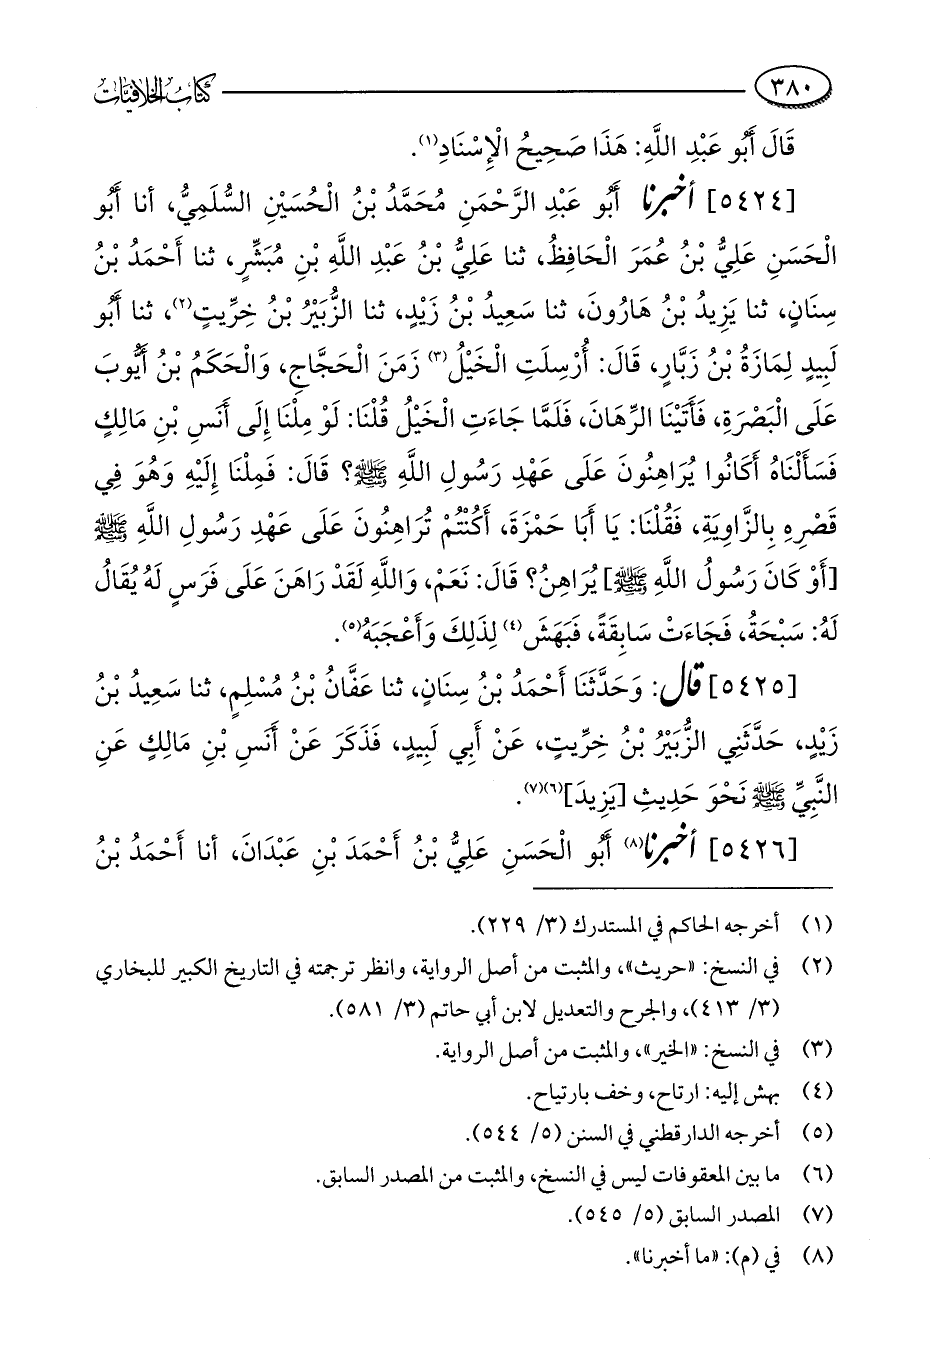 ٣٨٠ كتاب الخلافيات
قَالَ أَبُو عَبْدِ اللَّهِ: هَذَا صَحِيحُ الْإِسْنَادِ(١).
[٥٤٢٤] أخبرنا أَبُو عَبْدِ الرَّحْمَنِ مُحَمَّدُ بْنُ الْحُسَيْنِ السُّلَمِيُّ، أنا أَبُو
الْحَسَنِ عَلِيُّ بْنُ عُمَرَ الْحَافِظُ، ثنا عَلِيُّ بْنُ عَبْدِ اللَّهِ بْنِ مُبَشِّرٍ، ثنا أَحْمَدُ بْنُ
سِنَانٍ، ثنا يَزِيدُ بْنُ هَارُونَ، ثنا سَعِيدُ بْنُ زَيْدٍ، ثنا الزُّبَيْرُ بْنُ خِرِّيتٍ(٢)، ثنا أَبُو
لَبِيدٍ لِمَازَةُ بْنُ زَبَّارٍ، قَالَ: أُرْسِلَتِ الْخَيْلُ(٣) زَمَنَ الْحَجَّاجِ، وَالْحَكَمُ بْنُ أَيُّوبَ
عَلَى الْبَصْرَةِ، فَأَتَيْنَا الرِّهَانَ، فَلَمَّا جَاءَتِ الْخَيْلُ قُلْنَا: لَوْ مِلْنَا إِلَى أَنَسِ بْنِ مَالِكٍ
فَسَأَلْنَاهُ أَكَانُوا يُرَاهِنُونَ عَلَى عَهْدِ رَسُولِ اللَّهِ ﷺ؟ قَالَ: فَمِلْنَا إِلَيْهِ وَهُوَ فِي
قَصْرِهِ بِالزَّاوِيَةِ، فَقُلْنَا: يَا أَبَا حَمْزَةَ، أَكُنْتُمْ تُرَاهِنُونَ عَلَى عَهْدِ رَسُولِ اللَّهِ ﷺ
[أَوْ كَانَ رَسُولُ اللَّهِ ﷺ] يُرَاهِنُ؟ قَالَ: نَعَمْ، وَاللَّهِ لَقَدْ رَاهَنَ عَلَى فَرَسٍ لَهُ يُقَالُ
لَهُ: سَبْحَةُ، فَجَاءَتْ سَابِقَةً، فَبَهَشَ(٤) لِذَلِكَ وَأَعْجَبَهُ(٥).
[٥٤٢٥] قال: وَحَدَّثَنَا أَحْمَدُ بْنُ سِنَانٍ، ثنا عَفَّانُ بْنُ مُسْلِمٍ، ثنا سَعِيدُ بْنُ
زَيْدٍ، حَدَّثَنِي الزُّبَيْرُ بْنُ خِرِّيتٍ، عَنْ أَبِي لَبِيدٍ، فَذَكَرَ عَنْ أَنَسِ بْنِ مَالِكٍ عَنِ
النَّبِيِّ ﷺ نَحْوَ حَدِيثِ [يَزِيدَ](٦)(٧).
[٥٤٢٦] أخبرنا(٨) أَبُو الْحَسَنِ عَلِيُّ بْنُ أَحْمَدَ بْنِ عَبْدَانَ، أنا أَحْمَدُ بْنُ
(١) أخرجه الحاكم في المستدرك (٣/ ٢٢٩).
(٢) في النسخ: «حريث»، والمثبت من أصل الرواية، وانظر ترجمته في التاريخ الكبير للبخاري
(٣/ ٤١٣)، والجرح والتعديل لابن أبي حاتم (٣/ ٥٨١).
(٣) في النسخ: «الخير»، والمثبت من أصل الرواية.
(٤) بهش إليه: ارتاح، وخف بارتياح.
(٥) أخرجه الدارقطني في السنن (٥/ ٥٤٤).
(٦) ما بين المعقوفات ليس في النسخ، والمثبت من المصدر السابق.
(٧) المصدر السابق (٥/ ٥٤٥).
(٨) في (م): «ما أخبرنا».